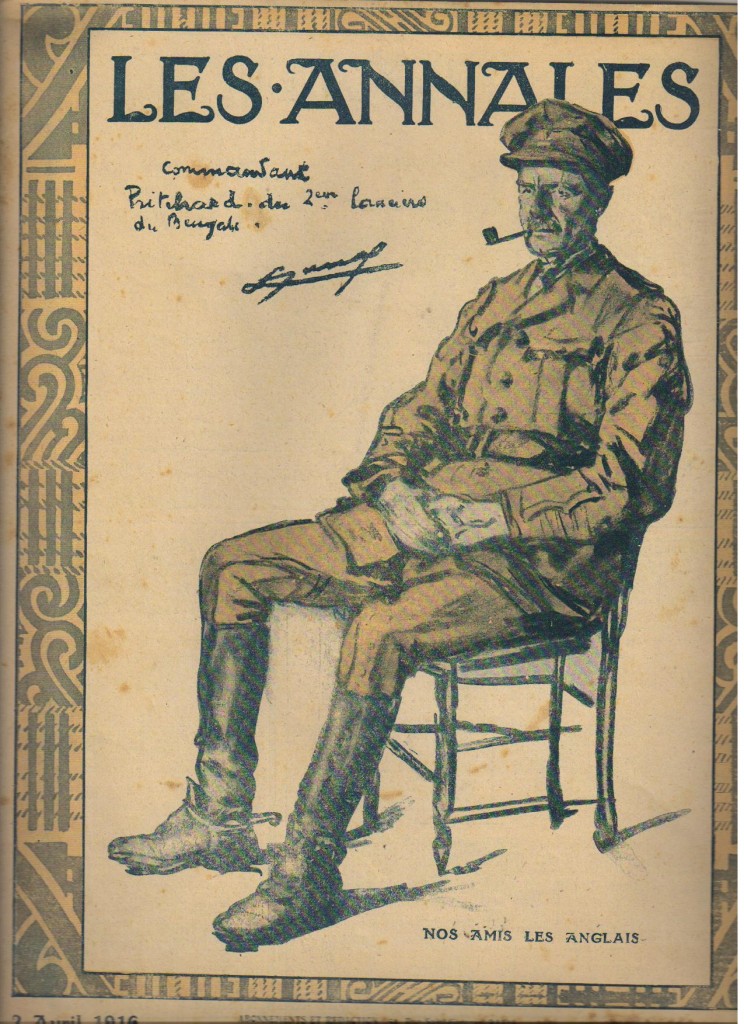 LES·ANNALES
Commandant
Pritchard. du 2ème lanciers
du Bengale.
NOS AMIS LES ANGLAIS
2 Avril 1916
ABONNEMENTS ET